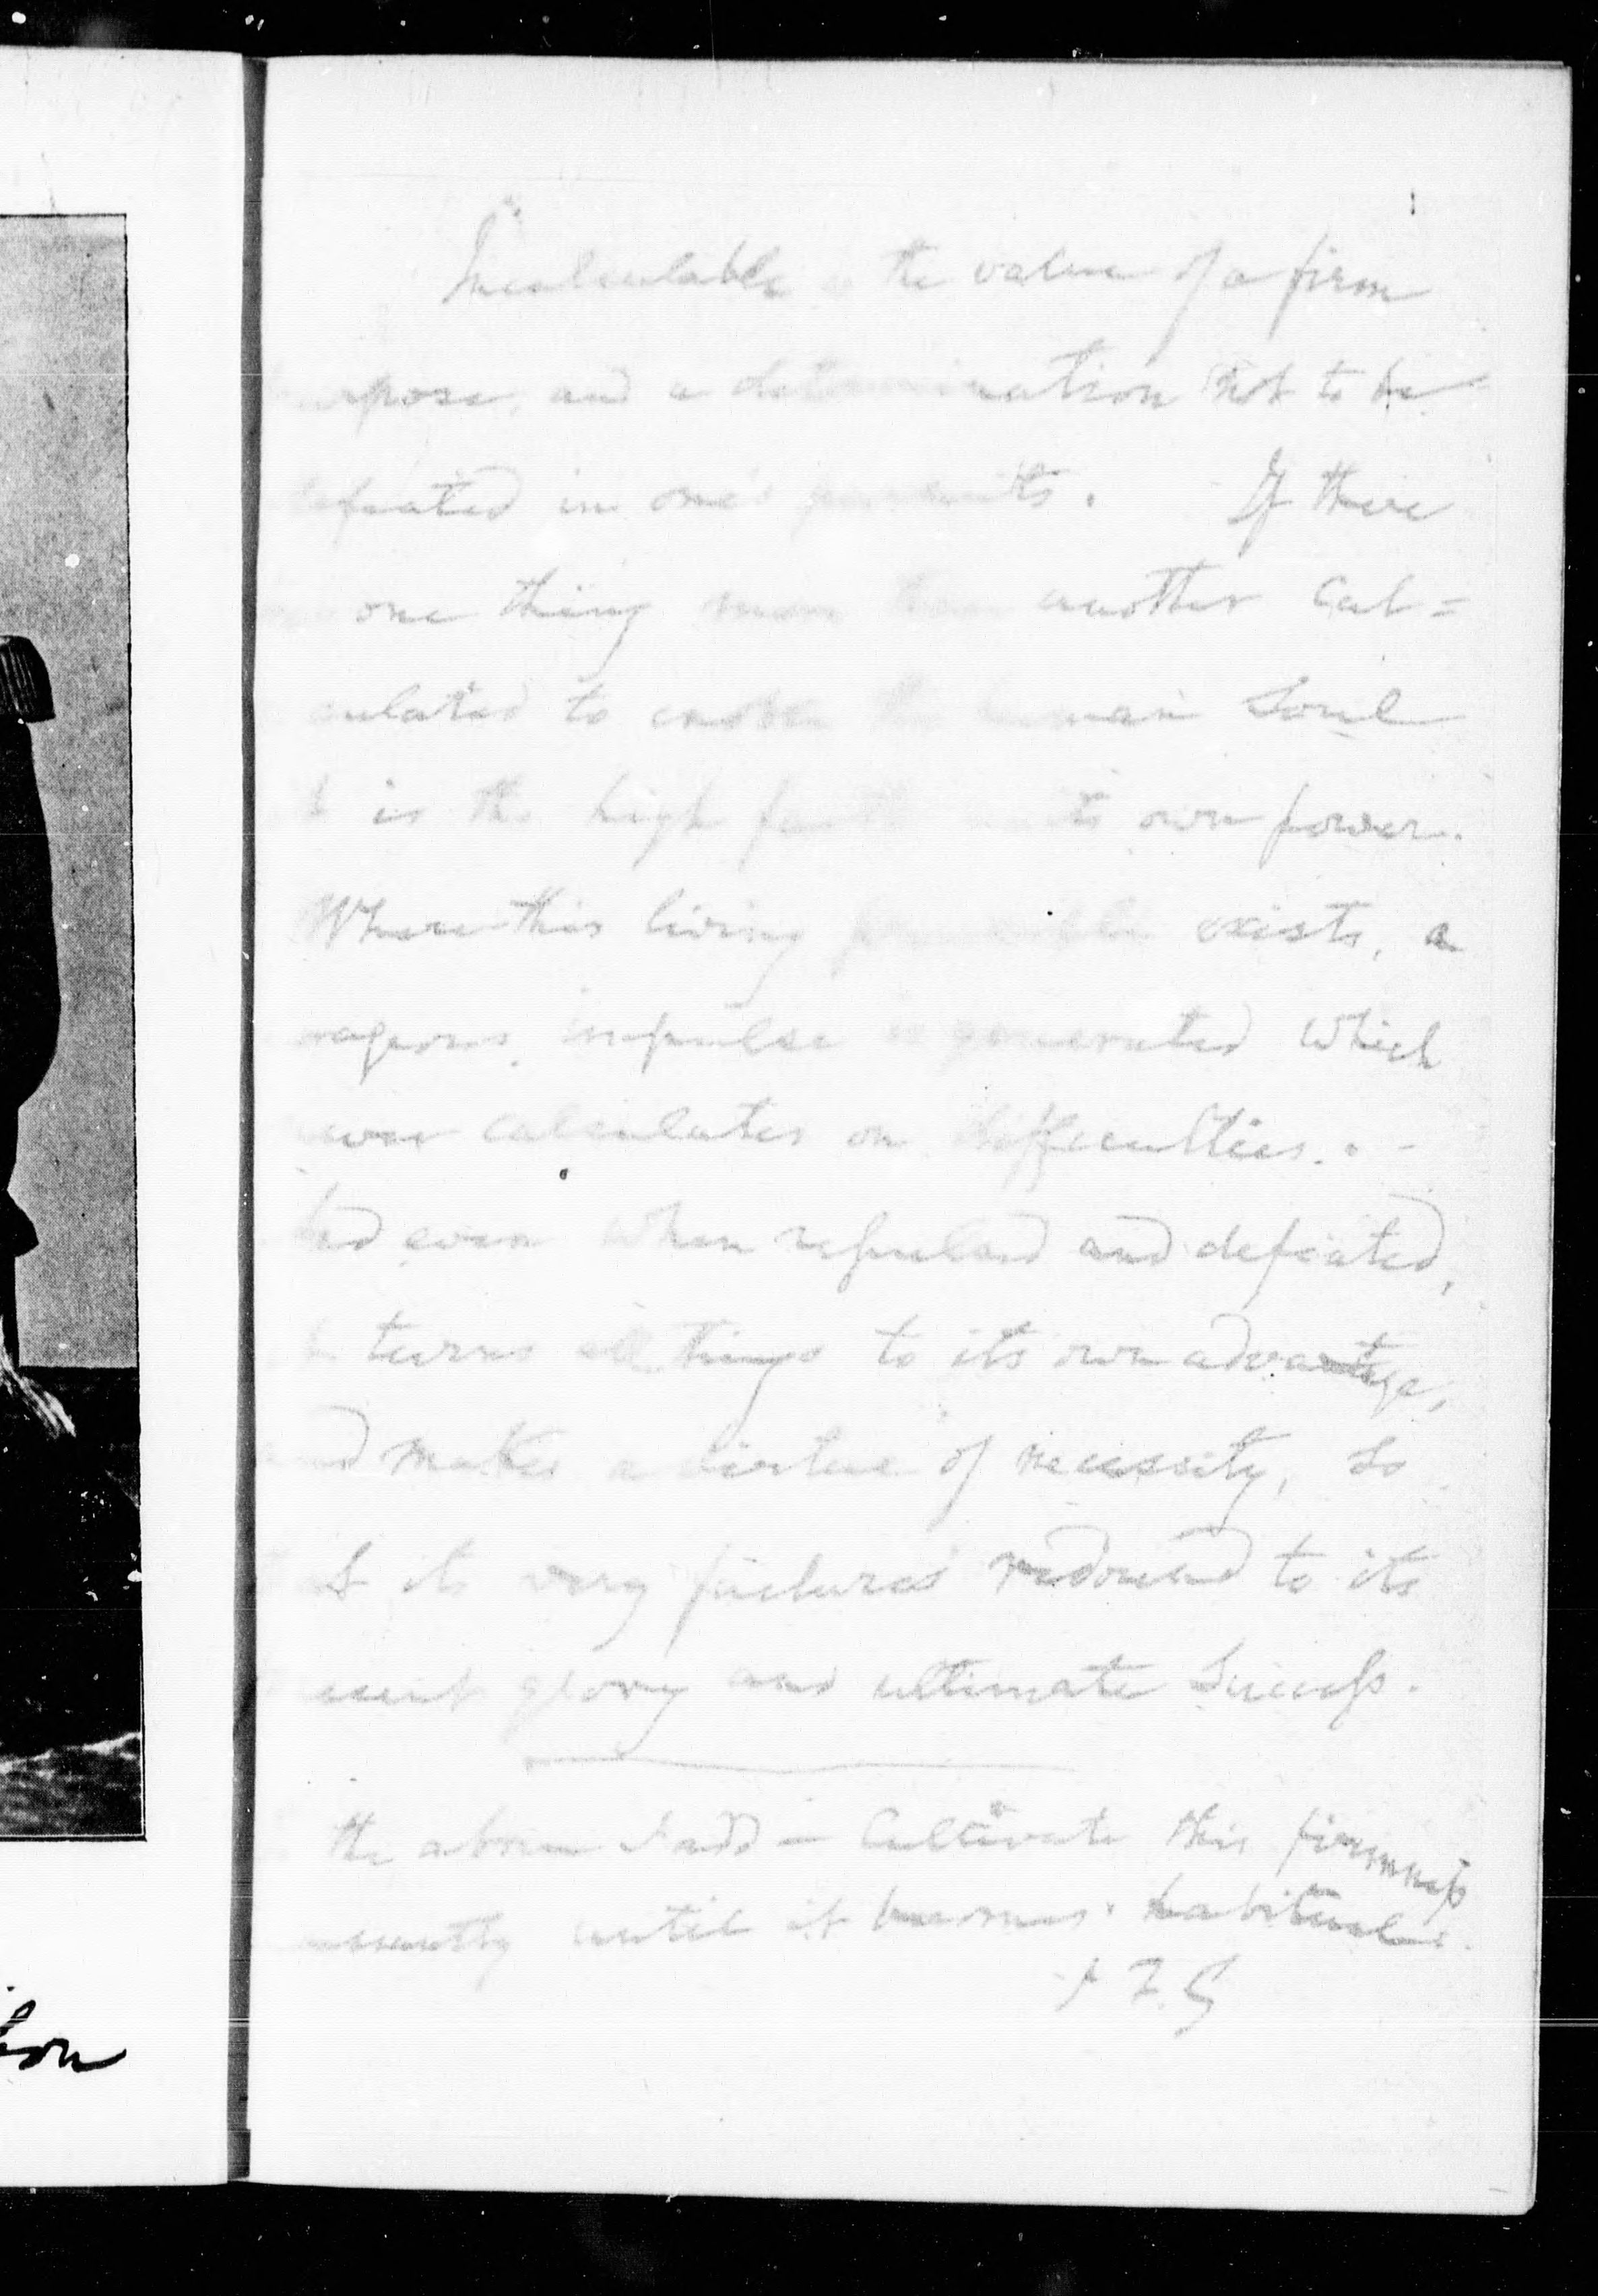 Incalculable is the value of a firm
purpose, and a determination not to be
defeated in one's pursuits. If there
one thing more than another cal=
culated to ennoble the human Soul
it is the high faith in its own power.
Where this living principle exists, a
courageous impulse is generated which
never calculates on difficulties. -
And even when repulsed and defeated,
it turns all things to its own advantage,
and makes a virtue of necessity, so
that its very failures redound to its
glory and ultimate Success.
the above I add — Cultivate this firmness
until it becomes habitual.
hon